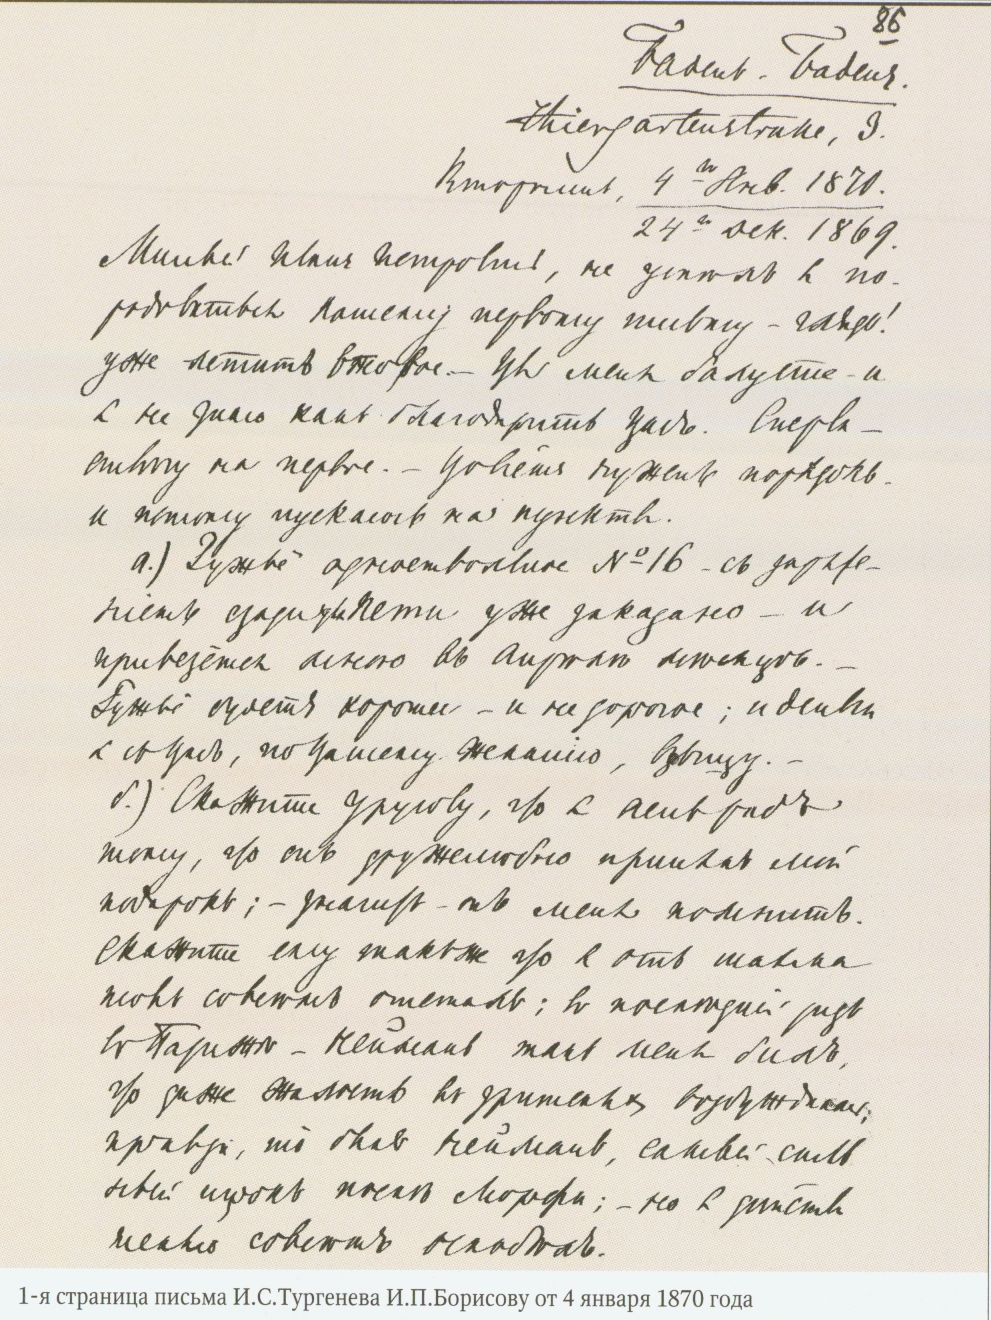 86
Баденъ-Баденъ.
Thiergartenstrasse, 3.
Вторникъ, 4го Янв. 1870.
24го Дек. 1869.
Милый Иванъ Петровичъ, не успѣлъ я по-
радоваться Вашему первому письму – глядь!
уже летитъ второе. – Вы меня балуете – и
я не знаю какъ благодарить Васъ. Сперва –
отвѣчу на первое. – Во всёмъ нуженъ порядокъ.
и потому пускаюсь на пункты.
а.) Ружьё одноствольное № 16 – съ заряже-
ніемъ сзади Пети уже заказано – и
привезётся мною въ Апрѣлѣ мѣсяцѣ. –
Ружьё будетъ хорошее – и не дорогое; и деньги
я съ Васъ, по Вашему желанію, взыщу. –
б.) Скажите Урусову, что я очень радъ
тому, что онъ дружелюбно принялъ мой
подарокъ; – значитъ – онъ меня помнитъ.
Скажите ему также что я отъ шахма
товъ совсѣмъ отсталъ; въ послѣдній разъ
въ Парижѣ – Нейманъ такъ меня билъ,
что даже жалость въ зрителяхъ возбуждалъ;
правда, то былъ Нейманъ, самый силь
ный игрокъ послѣ Морфи; – но я дѣйств
ительно совсѣмъ ослабѣлъ.
1-я страница письма И.С.Тургенева И.П.Борисову от 4 января 1870 года